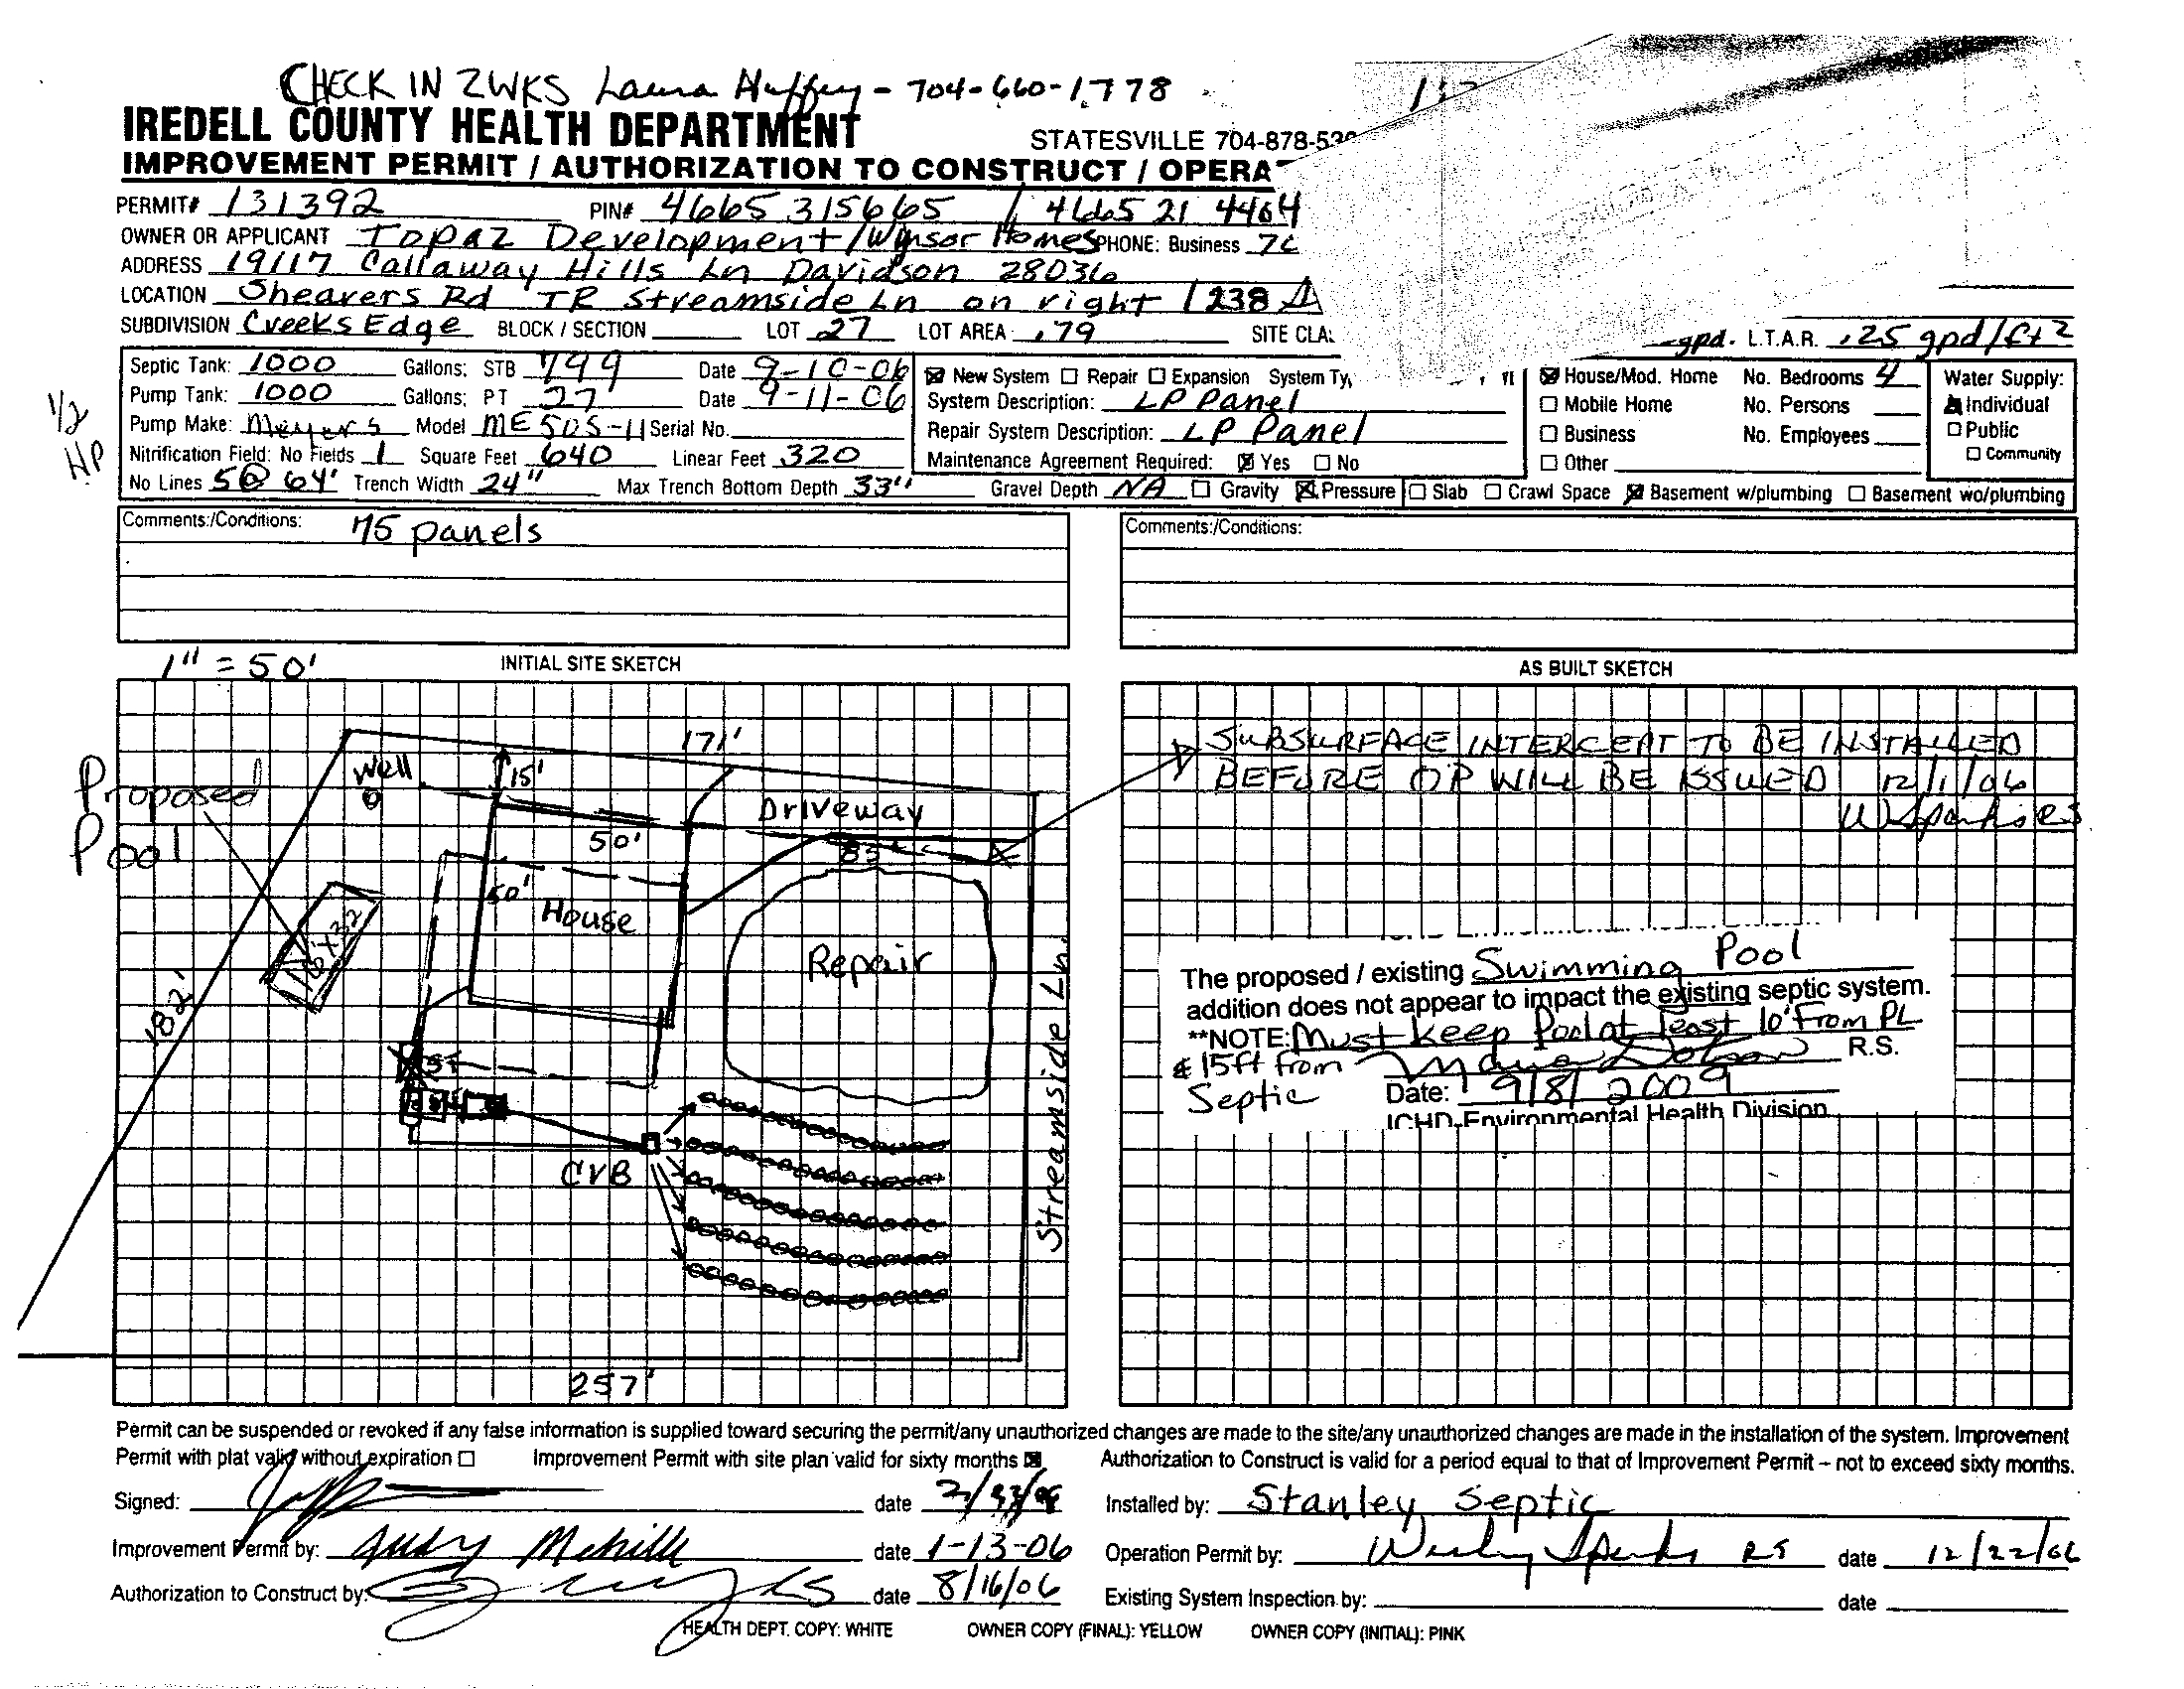 CHECK IN 2WKS Laura Huffey - 704-660-1778
IREDELL COUNTY HEALTH DEPARTMENT
STATESVILLE 704-878-53
IMPROVEMENT PERMIT / AUTHORIZATION TO CONSTRUCT / OPERAT
PERMIT# 131392 PIN# 4665 315665 / 4665 21 4464
OWNER OR APPLICANT Topaz Development/Wynsor Homes PHONE: Business 70
ADDRESS 19117 Callaway Hills Ln Davidson 28036
LOCATION Shearers Rd TR Streamside Ln on right 1238
SUBDIVISION Creeks Edge BLOCK / SECTION LOT 27 LOT AREA .79 SITE CLA gpd. L.T.A.R. .25 gpd/ft2
Septic Tank: 1000 Gallons: STB 799 Date 9-10-06
Pump Tank: 1000 Gallons: PT 27 Date 9-11-06
1/2 HP
Pump Make: Meyers Model ME50S-11 Serial No.
Nitrification Field: No Fields 1 Square Feet 640 Linear Feet 320
No Lines 5@64' Trench Width 24" Max Trench Bottom Depth 33" Gravel Depth NA Gravity Pressure Slab Crawl Space Basement w/plumbing Basement wo/plumbing
New System Repair Expansion System Ty
System Description: LP Panel
Repair System Description: LP Panel
Maintenance Agreement Required: Yes No
House/Mod. Home No. Bedrooms 4
Mobile Home No. Persons
Business No. Employees
Other
Water Supply:
Individual
Public
Community
Comments:/Conditions: 75 panels
Comments:/Conditions:
1" = 50'
INITIAL SITE SKETCH
AS BUILT SKETCH
171'
Well
15'
Proposed
Pool
Driveway
50'
85'
50'
House
16x32
Repair
182'
ST
CVB
Streamside Ln.
257'
SUBSURFACE INTERCEPT TO BE INSTALLED
BEFORE OP WILL BE ISSUED 12/1/06
W Sparks RS
The proposed / existing Swimming Pool
addition does not appear to impact the existing septic system.
**NOTE: Must keep Pool at least 10' from PL
& 15ft from R.S.
Septic Date: 9/8/2009
ICHD-Environmental Health Division
Permit can be suspended or revoked if any false information is supplied toward securing the permit/any unauthorized changes are made to the site/any unauthorized changes are made in the installation of the system. Improvement
Permit with plat valid without expiration Improvement Permit with site plan valid for sixty months Authorization to Construct is valid for a period equal to that of Improvement Permit – not to exceed sixty months.
Signed: date
Installed by: Stanley Septic
Improvement Permit by: Judy date 1-13-06
Operation Permit by: Wesley Sparks RS date 12/22/06
Authorization to Construct by: RS date 8/16/06
Existing System Inspection by: date
HEALTH DEPT. COPY: WHITE OWNER COPY (FINAL): YELLOW OWNER COPY (INITIAL): PINK